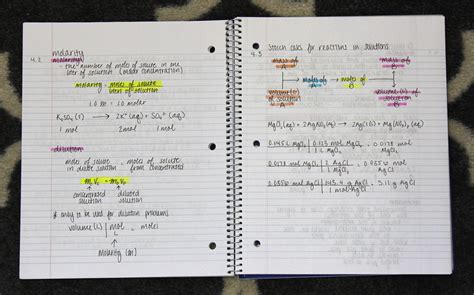 4.2 molarity
molarity
the number of moles of solute in one
liter of solution (molar concentration)
molarity = moles of solute
liters of solution
1.0 M = 1.0 molar
K₂SO₄ (s) → 2K⁺ (aq) + SO₄²⁻ (aq)
1 mol 2 mol 1 mol
dilution
moles of solute = moles of solute
in dilute solution from concentrated
M₁V₁ = M₂V₂
concentrated solution
diluted solution
* only to be used for dilution problems
volume (L) | mol = moles
L
molarity (M)
4.3 Stoich calcs for reactions in solutions
mass of A
mass of B
moles of A → moles of B
volume (L) of solution A
volume (L) of solution B
MgCl₂ (aq) + 2AgNO₃ (aq) → 2AgCl(s) + Mg(NO₃)₂ (aq)
0.145 L MgCl₂ | 0.123 mol MgCl₂ = 0.0178 mol MgCl₂
1 L MgCl₂
0.0178 mol MgCl₂ | 2 AgCl = 0.0356 mol AgCl
1 MgCl₂
0.0356 mol AgCl | 143.4 g AgCl = 5.11 g AgCl
1 mol AgCl